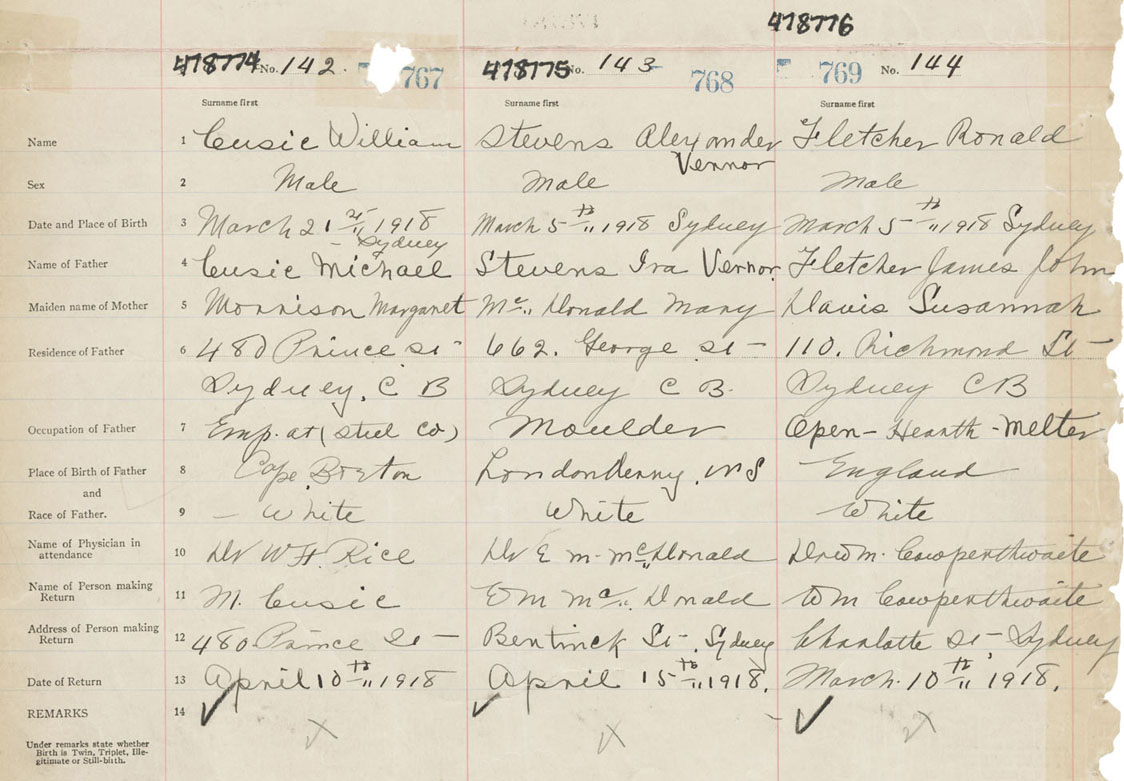 478776
478774 No. 142. 767 478775 No. 143 768 769 No. 144
Surname first Surname first Surname first
Name 1 Cusic William Stevens Alexander Fletcher Ronald
Vernor
Sex 2 Male Male Male
Date and Place of Birth 3 March 21st 1918 March 5th 1918 Sydney March 5th 1918 Sydney
- Sydney
Name of Father 4 Cusic Michael Stevens Ira Vernor Fletcher James John
Maiden name of Mother 5 Morrison Margaret Mc Donald Mary Davis Susannah
Residence of Father 6 480 Prince St - 662. George St - 110. Richmond St -
Sydney, C B Sydney C B. Sydney CB
Occupation of Father 7 Emp. at (Steel Co) Moulder Open-Hearth-Melter
Place of Birth of Father 8 Cape Breton Londonderry, NS England
and
Race of Father. 9 - White White White
Name of Physician in
attendance 10 Dr W H Rice Dr E M McDonald Dr Wm. Cowperthwaite
Name of Person making
Return 11 M. Cusic E M Mc Donald Wm Cowperthwaite
Address of Person making
Return 12 480 Prince St - Bentinck St-, Sydney Charlotte St-, Sydney
Date of Return 13 April 10th 1918 April 15th 1918. March. 10th 1918.
REMARKS 14 ✓ ✓ - ✓
x x x
Under remarks state whether
Birth is Twin, Triplet, Ille-
gitimate or Still-birth.